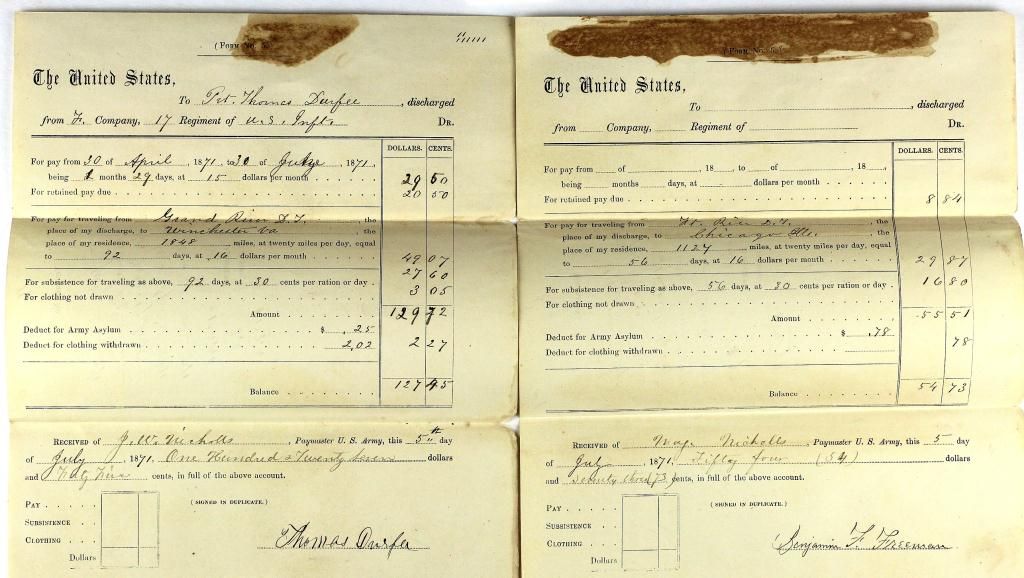 (FORM No. 5.)
The United States,
To Pvt. Thomas Durfee, discharged
from F. Company, 17 Regiment of U.S. Inft. DR.
DOLLARS. CENTS.
For pay from 30 of April, 1871, to 30 of, 1871,
being months 29 days, at 15 dollars per month 29 50
For retained pay due 20 50
For pay for traveling from Grand River D.T., the
place of my discharge, to Winchester Va the
place of my residence, 1848 miles, at twenty miles per day, equal
to 92 days, at 16 dollars per month 49 07
For subsistence for traveling as above, 92 days, at 30 cents per ration or day 27 60
For clothing not drawn 3 05
Amount 129 72
Deduct for Army Asylum $ .25
Deduct for clothing withdrawn 2,02 2 27
Balance 127 45
RECEIVED of J. W. Nicholls, Paymaster U. S. Army, this 5th day
of July, 1871. One Hundred & Twenty Seven dollars
and Forty Five cents, in full of the above account.
PAY
(SIGNED IN DUPLICATE.)
SUBSISTENCE
CLOTHING
Dollars
Thomas Durfee
(FORM No. 5.)
The United States,
To, discharged
from Company, Regiment of DR.
DOLLARS. CENTS.
For pay from of, 18, to of, 18,
being months days, at dollars per month
For retained pay due 8 84
For pay for traveling from Gr. River D.T., the
place of my discharge, to Chicago Ills. the
place of my residence, 1127 miles, at twenty miles per day, equal
to 56 days, at 16 dollars per month 29 87
For subsistence for traveling as above, 56 days, at 30 cents per ration or day 16 80
For clothing not drawn
Amount 55 51
Deduct for Army Asylum $ .78
Deduct for clothing withdrawn 78
Balance 54 73
RECEIVED of Maj. Nicholls Paymaster U. S. Army, this 5 day
of July, 1871. Fifty four (54) dollars
and Seventy three (73) cents, in full of the above account.
PAY
(SIGNED IN DUPLICATE.)
SUBSISTENCE
CLOTHING
Dollars
Benjamin F. Freeman